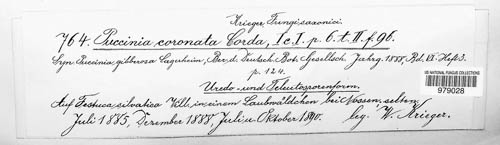 Krieger, Fungi saxonici.
764. Puccinia coronata Corda, Ic. I. p. 6. t. II. f. 96.
Syn. Puccinia gibberosa Lagerheim, Ber. d. Deutsch. Bot. Gesellsch. Jahrg. 1888, Bd. VI. Heft 3.
p. 124.
Uredo- und Teleutosporenform.
Auf Festuca silvatica Vill. in einem Laubwäldchen bei Nossen, selten.
Juli 1885, Dezember 1888, Juli u. Oktober 1890. leg. W. Krieger.
US NATIONAL FUNGUS COLLECTIONS
979028